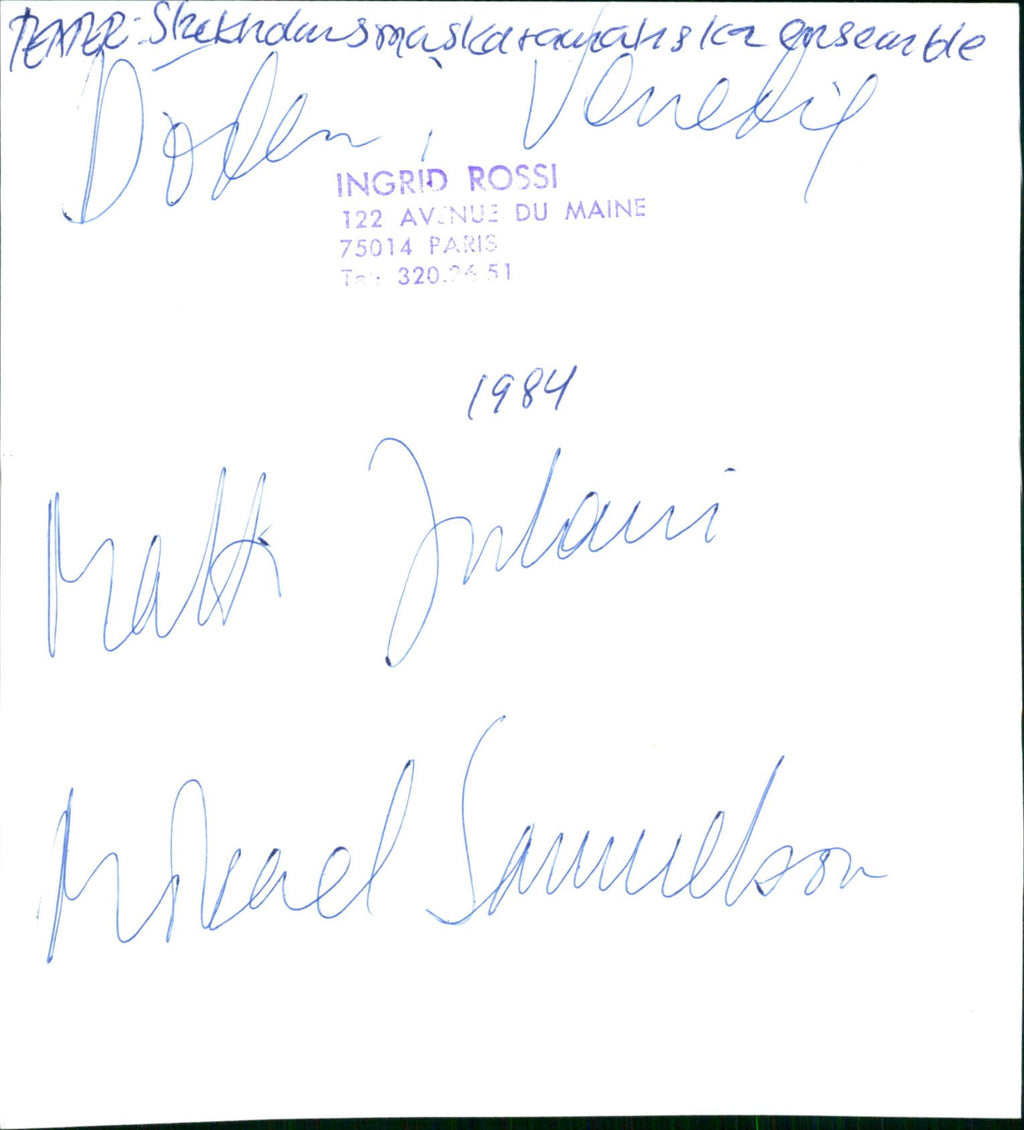 TEATER: ensemble
Döden i Venedig
INGRID ROSSI
122 AVENUE DU MAINE
75014 PARIS
Tel: 320.26.51
1984
Matti Juhani
Mikael Samuelson